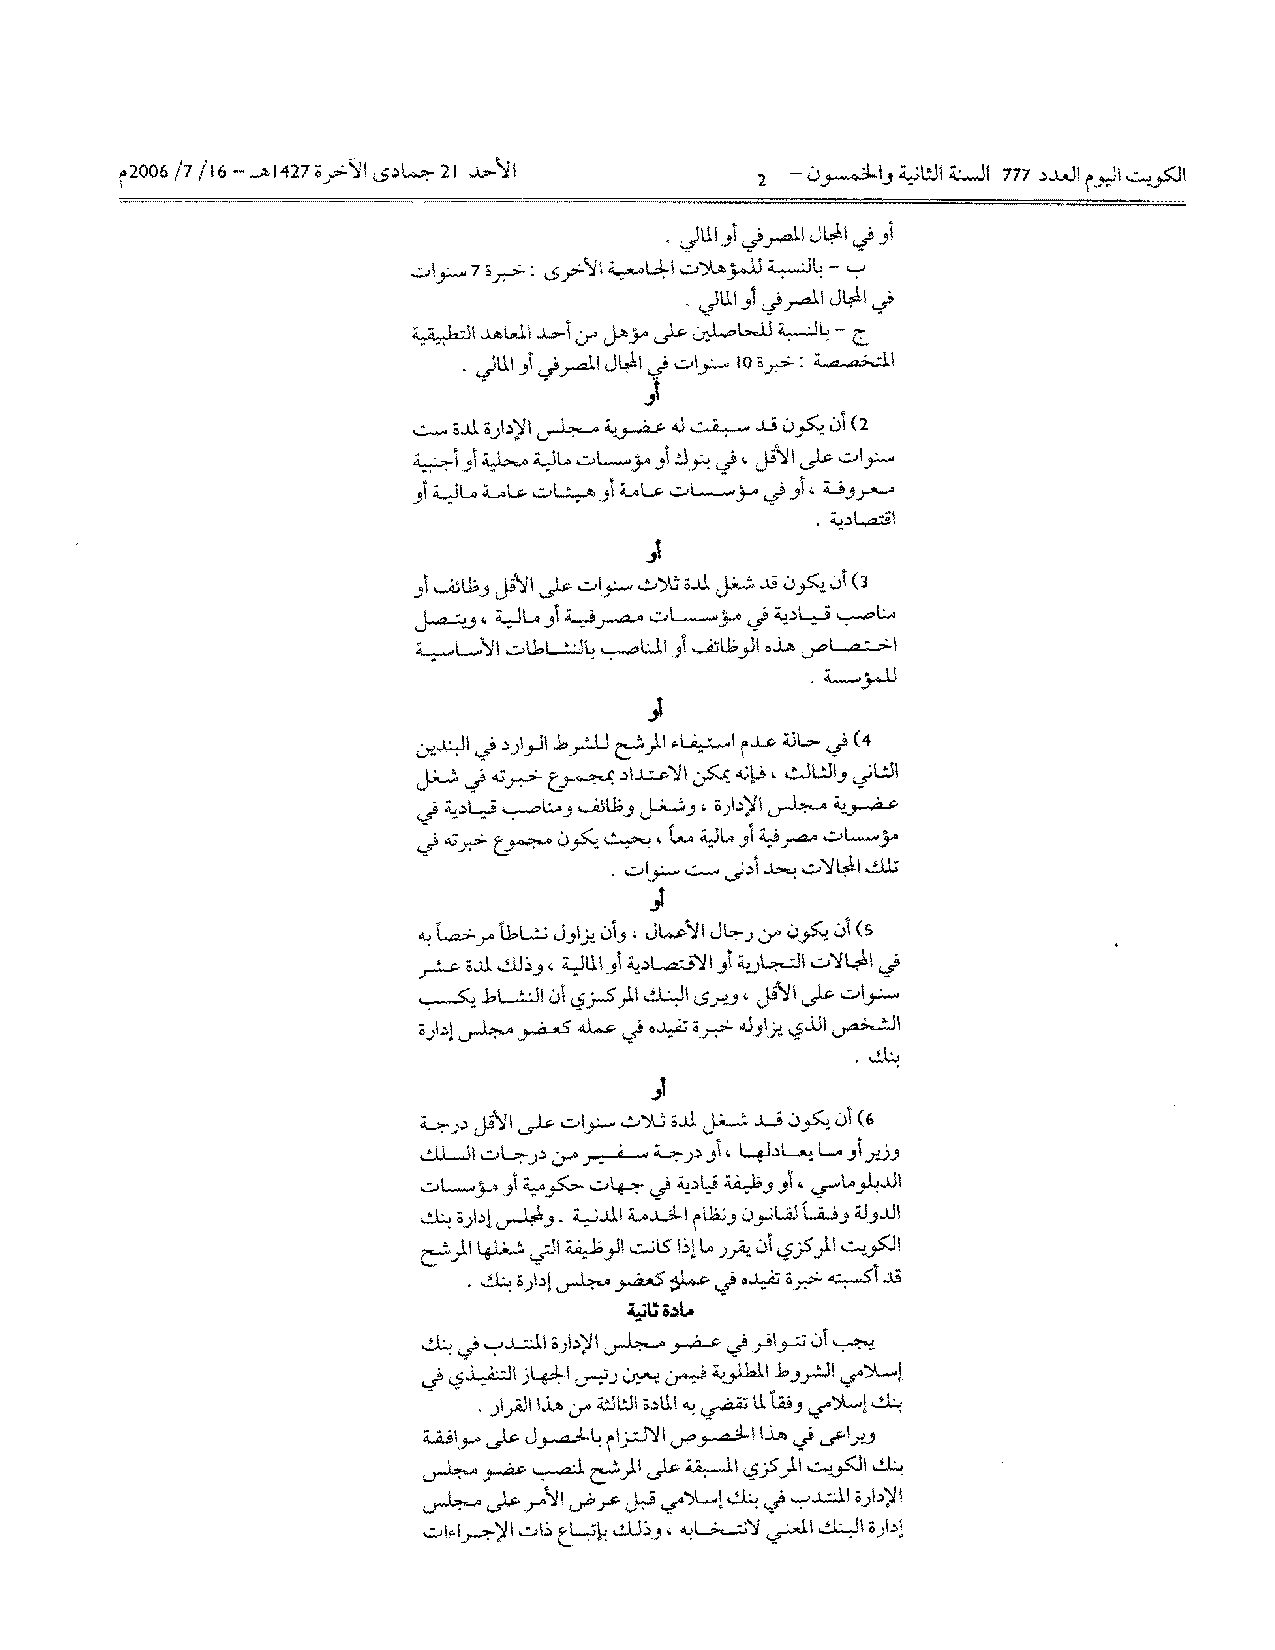 الكويت اليوم العدد 777 السنة الثانية والخمسون – 2 الأحد 21 جمادى الآخرة 1427هـ – 16/ 7/ 2006م
أو في المجال المصرفي أو المالي .
ب – بالنسبة للمؤهلات الجامعية الأخرى : خبرة 7 سنوات
في المجال المصرفي أو المالي .
ج – بالنسبة للحاصلين على مؤهل من أحد المعاهد التطبيقية
المتخصصة : خبرة 10 سنوات في المجال المصرفي أو المالي .
أو
2) أن يكون قد سبقت له عضوية مجلس الإدارة لمدة ست
سنوات على الأقل ، في بنوك أو مؤسسات مالية محلية أو أجنبية
معروفة ، أو في مؤسسات عامة أو هيئات عامة مالية أو
اقتصادية .
أو
3) أن يكون قد شغل لمدة ثلاث سنوات على الأقل وظائف أو
مناصب قيادية في مؤسسات مصرفية أو مالية ، ويتصل
اختصاص هذه الوظائف أو المناصب بالنشاطات الأساسية
للمؤسسة .
أو
4) في حالة عدم استيفاء المرشح للشرط الوارد في البندين
الثاني والثالث ، فإنه يمكن الاعتداد بمجموع خبرته في شغل
عضوية مجلس الإدارة ، وشغل وظائف ومناصب قيادية في
مؤسسات مصرفية أو مالية معاً ، بحيث يكون مجموع خبرته في
تلك المجالات بحد أدنى ست سنوات .
أو
5) أن يكون من رجال الأعمال ، وأن يزاول نشاطاً مرخصاً به
في المجالات التجارية أو الاقتصادية أو المالية ، وذلك لمدة عشر
سنوات على الأقل ، ويرى البنك المركزي أن النشاط يكسب
الشخص الذي يزاوله خبرة تفيده في عمله كعضو مجلس إدارة
بنك .
أو
6) أن يكون قد شغل لمدة ثلاث سنوات على الأقل درجة
وزير أو ما يعادلها ، أو درجة سفير من درجات السلك
الدبلوماسي ، أو وظيفة قيادية في جهات حكومية أو مؤسسات
الدولة وفقاً لقانون ونظام الخدمة المدنية . ولمجلس إدارة بنك
الكويت المركزي أن يقرر ما إذا كانت الوظيفة التي شغلها المرشح
قد أكسبته خبرة تفيده في عمله كعضو مجلس إدارة بنك .
مادة ثانية
يجب أن تتوافر في عضو مجلس الإدارة المنتدب في بنك
إسلامي الشروط المطلوبة فيمن يعين رئيس الجهاز التنفيذي في
بنك إسلامي وفقاً لما تقضي به المادة الثالثة من هذا القرار .
ويراعى في هذا الخصوص الالتزام بالحصول على موافقة
بنك الكويت المركزي المسبقة على المرشح لمنصب عضو مجلس
الإدارة المنتدب في بنك إسلامي قبل عرض الأمر على مجلس
إدارة البنك المعني لانتخابه ، وذلك بإتباع ذات الإجراءات